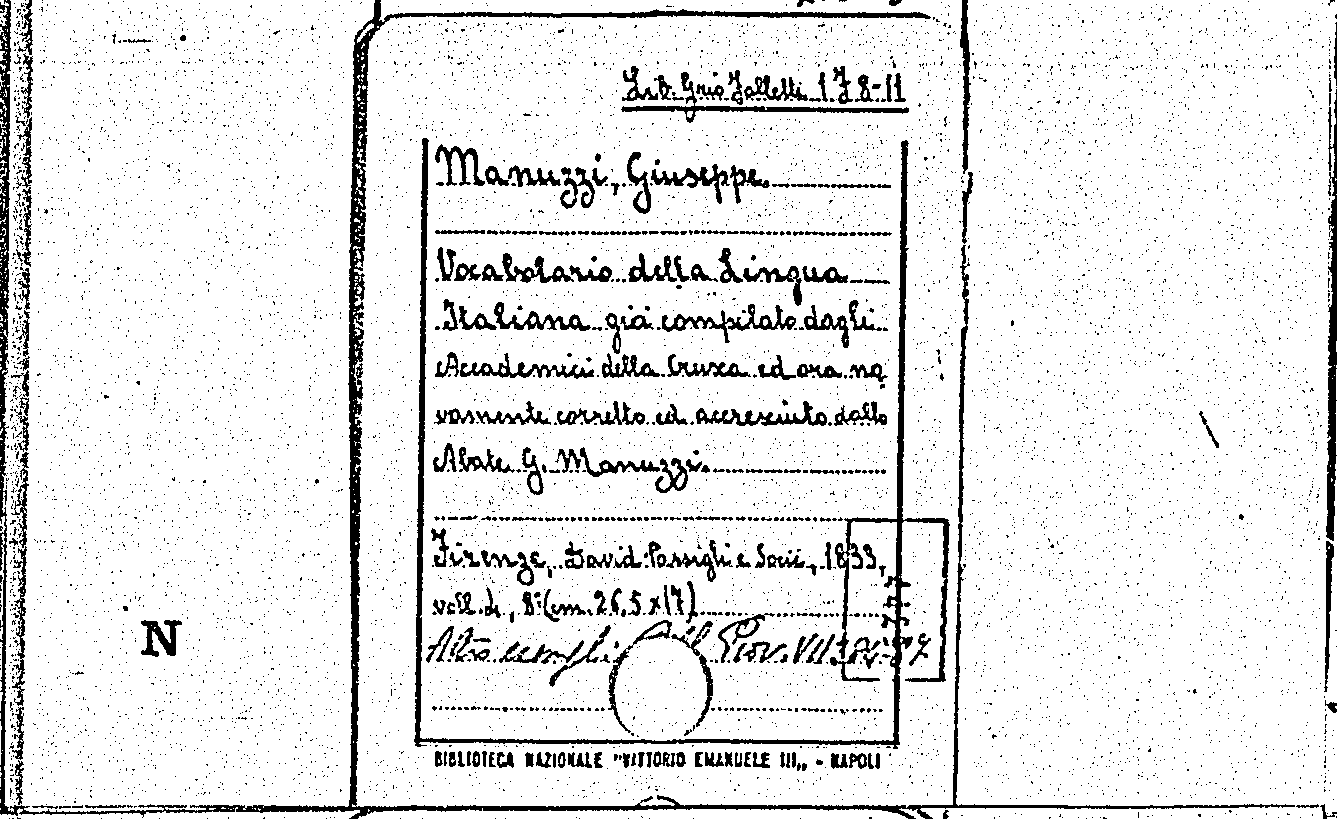 Lib. Grio Galletti 1 J 8-11
Manuzzi, Giuseppe.
Vocabolario della Lingua
Italiana già compilato dagli
Accademici della Crusca ed ora no
vamente corretto ed accresciuto dallo
Abate G. Manuzzi.
Firenze, David Passigli e Socii, 1833,
voll. 4, 8° (cm. 26,5 x 17)
Altro Prov. VII
N
BIBLIOTECA NAZIONALE "VITTORIO EMANUELE III„ - NAPOLI